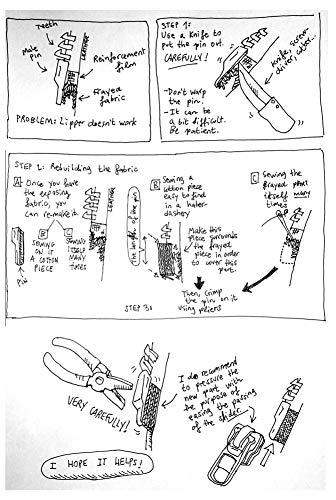 Teeth
Male
Pin
LEATHER
Reinforcement
film
Frayed
fabric
PROBLEM: Zipper doesn't work
STEP 1:
Use a Knife to
put the pin out.
CAREFULLY!
Knife, screw-
driver, cutter...
- Don't warp
the pin.
- It can be
a bit difficult.
Be patient.
STEP 2: Rebuilding the fabric
A
Once you have
the exposing
fabric, you
can re-make it.
B
SEWING
ON IT
A COTTON
PIECE
C
SEWING
ITSELF
MANY
TIMES
PIN
LEATHER
The length of the pin
B
Sewing a
cotton piece
easy to find
in a haber-
dashery
Make this
piece surrounds
the frayed
piece in order
to cover this
part.
C
Sewing the
frayed part
itself many
times
STEP 3:
Then, crimp
the pin on it
using pliers
VERY CAREFULLY!
I do recommend
to pressure the
new part with
the purpose of
easing the passing
of the slider.
I HOPE IT HELPS!